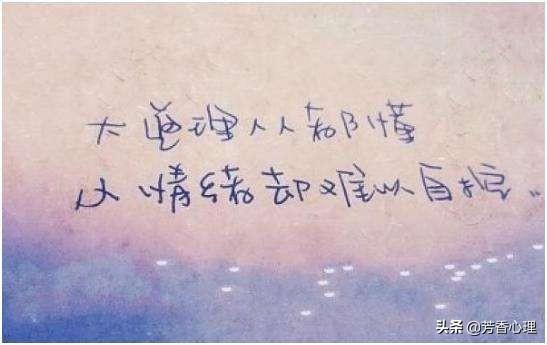 大道理人人都懂
小情绪却难以自控..
头条 @芳香心理